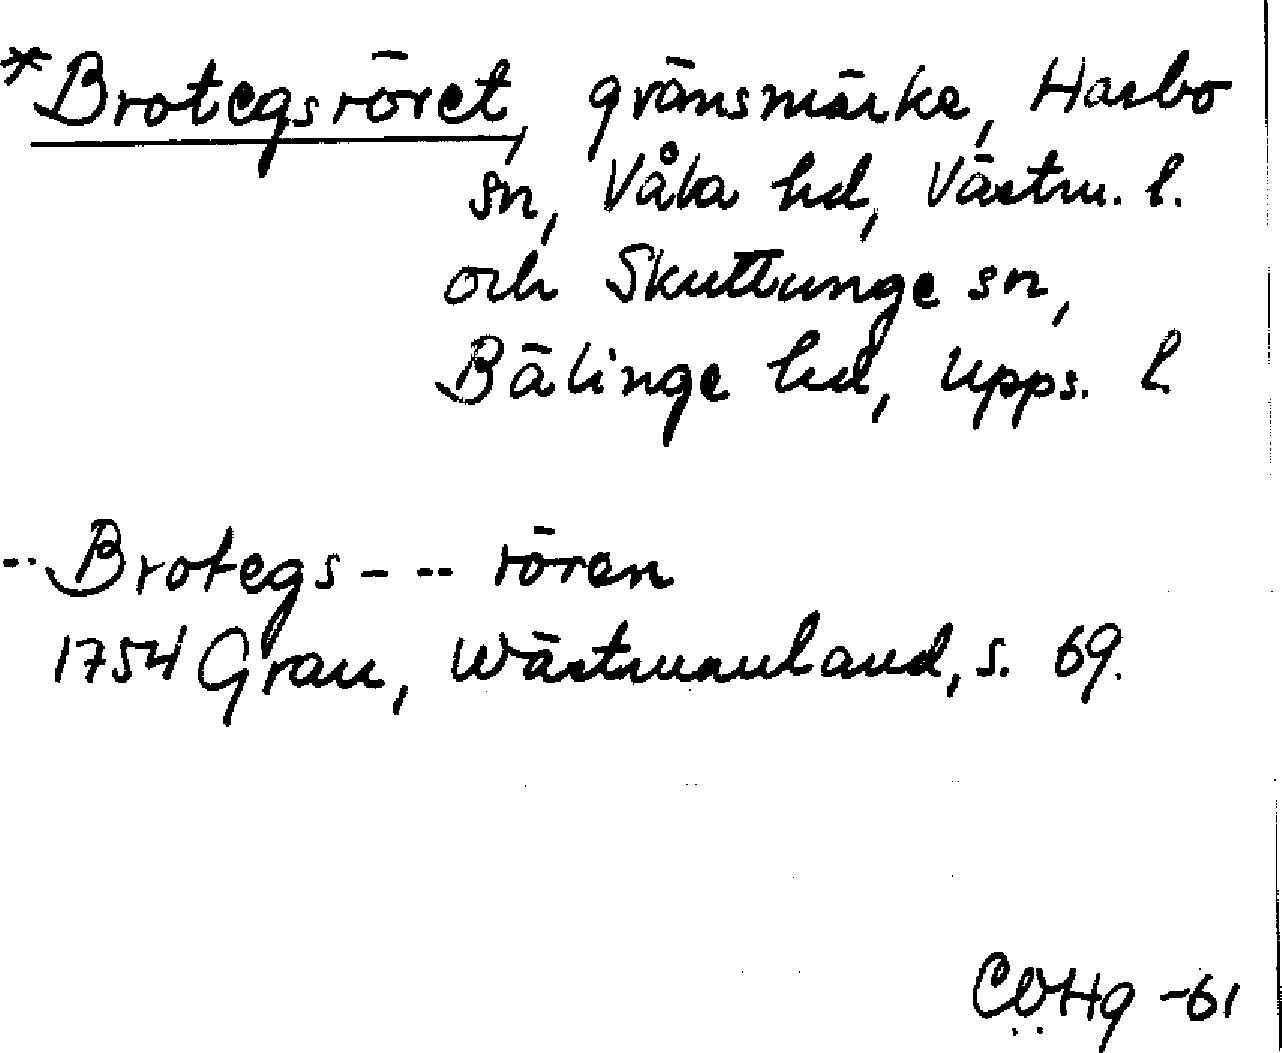 *Brotegsröret, gränsmärke, Harbo
sn, Våla hd, Västm. l.
och Skuttunge sn,
Bälinge hd, Upps. l.
--Brotegs- -- rören
1754 Grau, Wästmanland, s. 69.
CÖHg -61